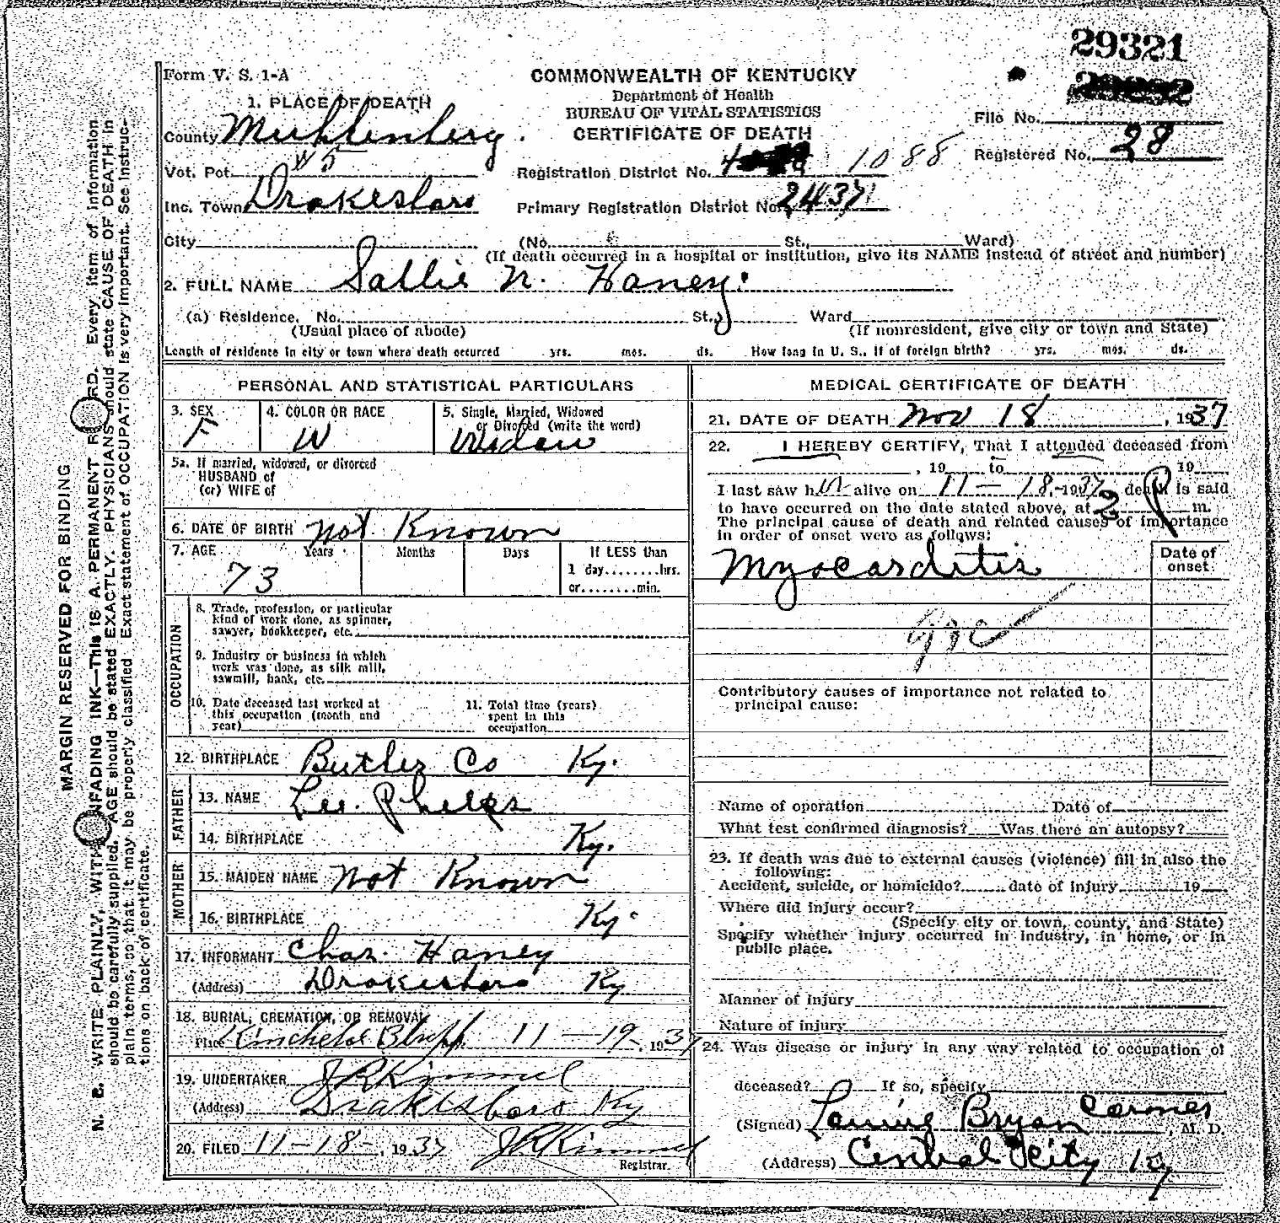 29321
Form V. S. 1-A
COMMONWEALTH OF KENTUCKY
Department of Health
BUREAU OF VITAL STATISTICS
CERTIFICATE OF DEATH
1. PLACE OF DEATH
County Muhlenberg.
Vot. Pct. W 5
Inc. Town Drakesboro
City
File No.
Registered No. 28
Registration District No. 1088
Primary Registration District No. 2437
(No. St., Ward)
(If death occurred in a hospital or institution, give its NAME instead of street and number)
2. FULL NAME Sallie N. Haney.
(a) Residence. No. St., Ward
(Usual place of abode) (If nonresident, give city or town and State)
Length of residence in city or town where death occurred yrs. mos. ds. How long in U. S., if of foreign birth? yrs. mos. ds.
PERSONAL AND STATISTICAL PARTICULARS
3. SEX F
4. COLOR OR RACE W
5. Single, Married, Widowed or Divorced (write the word) Widow
5a. If married, widowed, or divorced
HUSBAND of
(or) WIFE of
6. DATE OF BIRTH Not Known
7. AGE Years Months Days If LESS than
73 1 day........hrs.
or........min.
OCCUPATION
8. Trade, profession, or particular
kind of work done, as spinner,
sawyer, bookkeeper, etc.
9. Industry or business in which
work was done, as silk mill,
sawmill, bank, etc.
10. Date deceased last worked at
this occupation (month and
year)
11. Total time (years)
spent in this
occupation
12. BIRTHPLACE Butler Co Ky.
FATHER
13. NAME Lee. Phelps
14. BIRTHPLACE Ky.
MOTHER
15. MAIDEN NAME Not Known
16. BIRTHPLACE Ky.
17. INFORMANT Chas. Haney
(Address) Drakesboro Ky
18. BURIAL, CREMATION, OR REMOVAL
Place Kincheloe Bluff 11-19-, 1937
19. UNDERTAKER J R Kimmel
(Address) Drakesboro Ky
20. FILED 11-18-, 1937 J R Kimmel
Registrar.
MEDICAL CERTIFICATE OF DEATH
21. DATE OF DEATH Nov 18, 1937
22. I HEREBY CERTIFY, That I attended deceased from
, 19 to , 19
I last saw h alive on 11-18-, 1937, death is said
to have occurred on the date stated above, at 2 P m.
The principal cause of death and related causes of importance
in order of onset were as follows:
Date of
onset
Myocarditis
Contributory causes of importance not related to
principal cause:
Name of operation Date of
What test confirmed diagnosis? Was there an autopsy?
23. If death was due to external causes (violence) fill in also the
following:
Accident, suicide, or homicide? date of injury 19
Where did injury occur?
(Specify city or town, county, and State)
Specify whether injury occurred in industry, in home, or in
public place.
Manner of injury
Nature of injury
24. Was disease or injury in any way related to occupation of
deceased? If so, specify
(Signed) Bryan Coroner, M. D.
(Address) Central City Ky
MARGIN RESERVED FOR BINDING
N. B. WRITE PLAINLY, WITH UNFADING INK—This IS A PERMANENT RECORD. Every item of information
should be carefully supplied. AGE should be stated EXACTLY. PHYSICIANS should state CAUSE OF DEATH in
plain terms, so that it may be properly classified. Exact statement of OCCUPATION is very important. See instruc-
tions on back of certificate.